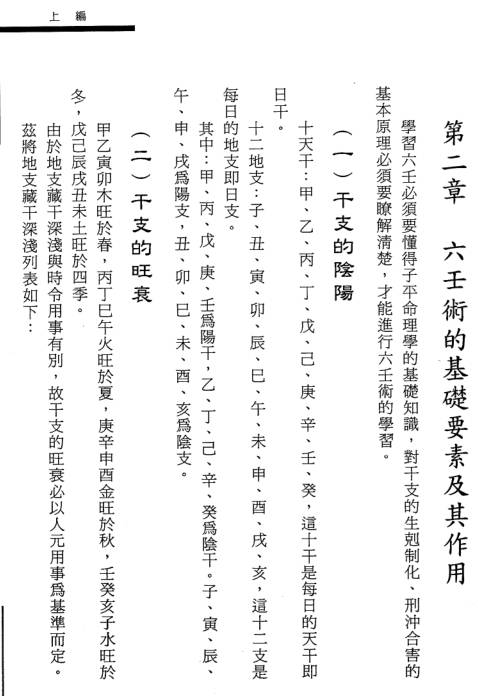 上 編
第二章 六壬術的基礎要素及其作用
學習六壬必須要懂得子平命理學的基礎知識，對干支的生剋制化、刑沖合害的
基本原理必須要瞭解清楚，才能進行六壬術的學習。
（一）干支的陰陽
十天干：甲、乙、丙、丁、戊、己、庚、辛、壬、癸，這十干是每日的天干即
日干。
十二地支：子、丑、寅、卯、辰、巳、午、未、申、酉、戌、亥，這十二支是
每日的地支即日支。
其中：甲、丙、戊、庚、壬爲陽干，乙、丁、己、辛、癸爲陰干。子、寅、辰、
午、申、戌爲陽支，丑、卯、巳、未、酉、亥爲陰支。
（二）干支的旺衰
甲乙寅卯木旺於春，丙丁巳午火旺於夏，庚辛申酉金旺於秋，壬癸亥子水旺於
冬，戊己辰戌丑未土旺於四季。
由於地支藏干深淺與時令用事有別，故干支的旺衰必以人元用事爲基準而定。
茲將地支藏干深淺列表如下：